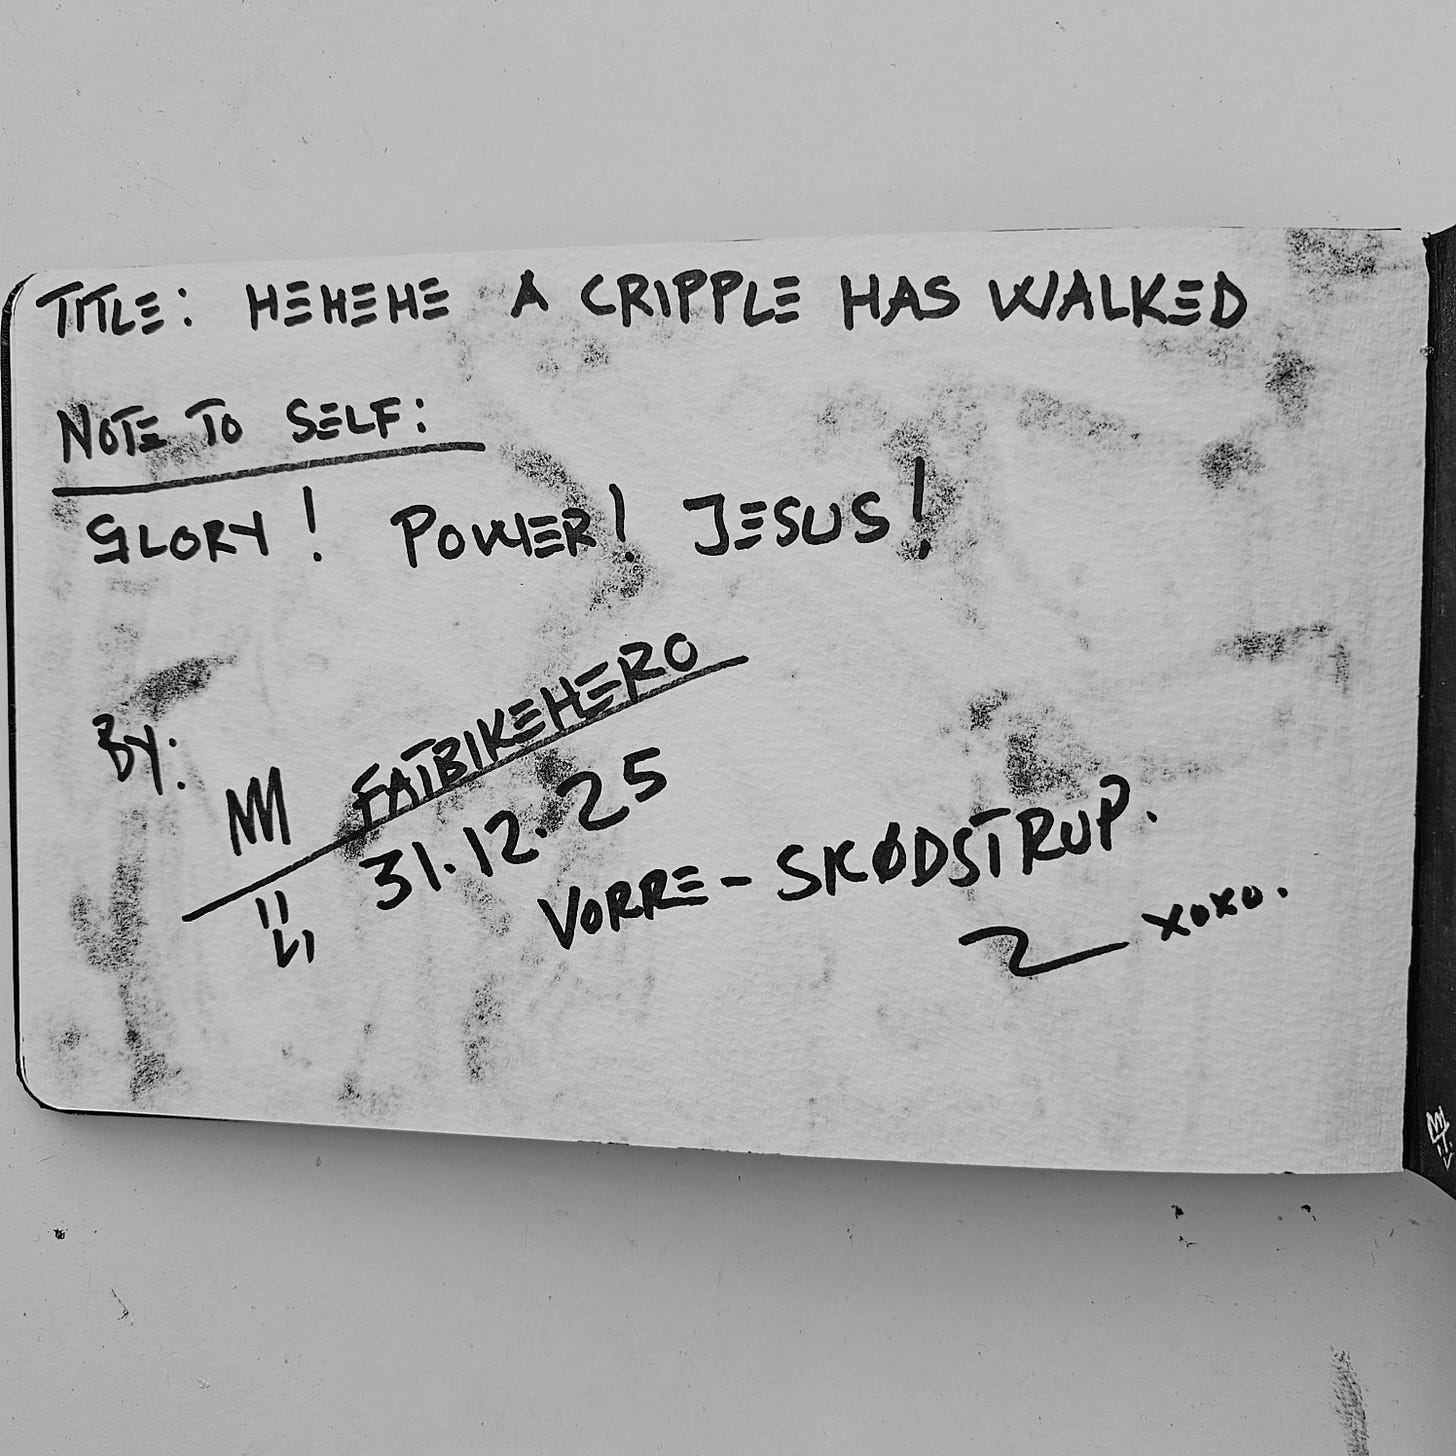 TITLE: HEHEHE A CRIPPLE HAS WALKED
NOTE TO SELF:
GLORY! POWER! JESUS!
BY: FATBIKEHERO
31.12.25
VORRE-SKØDSTRUP.
xoxo.